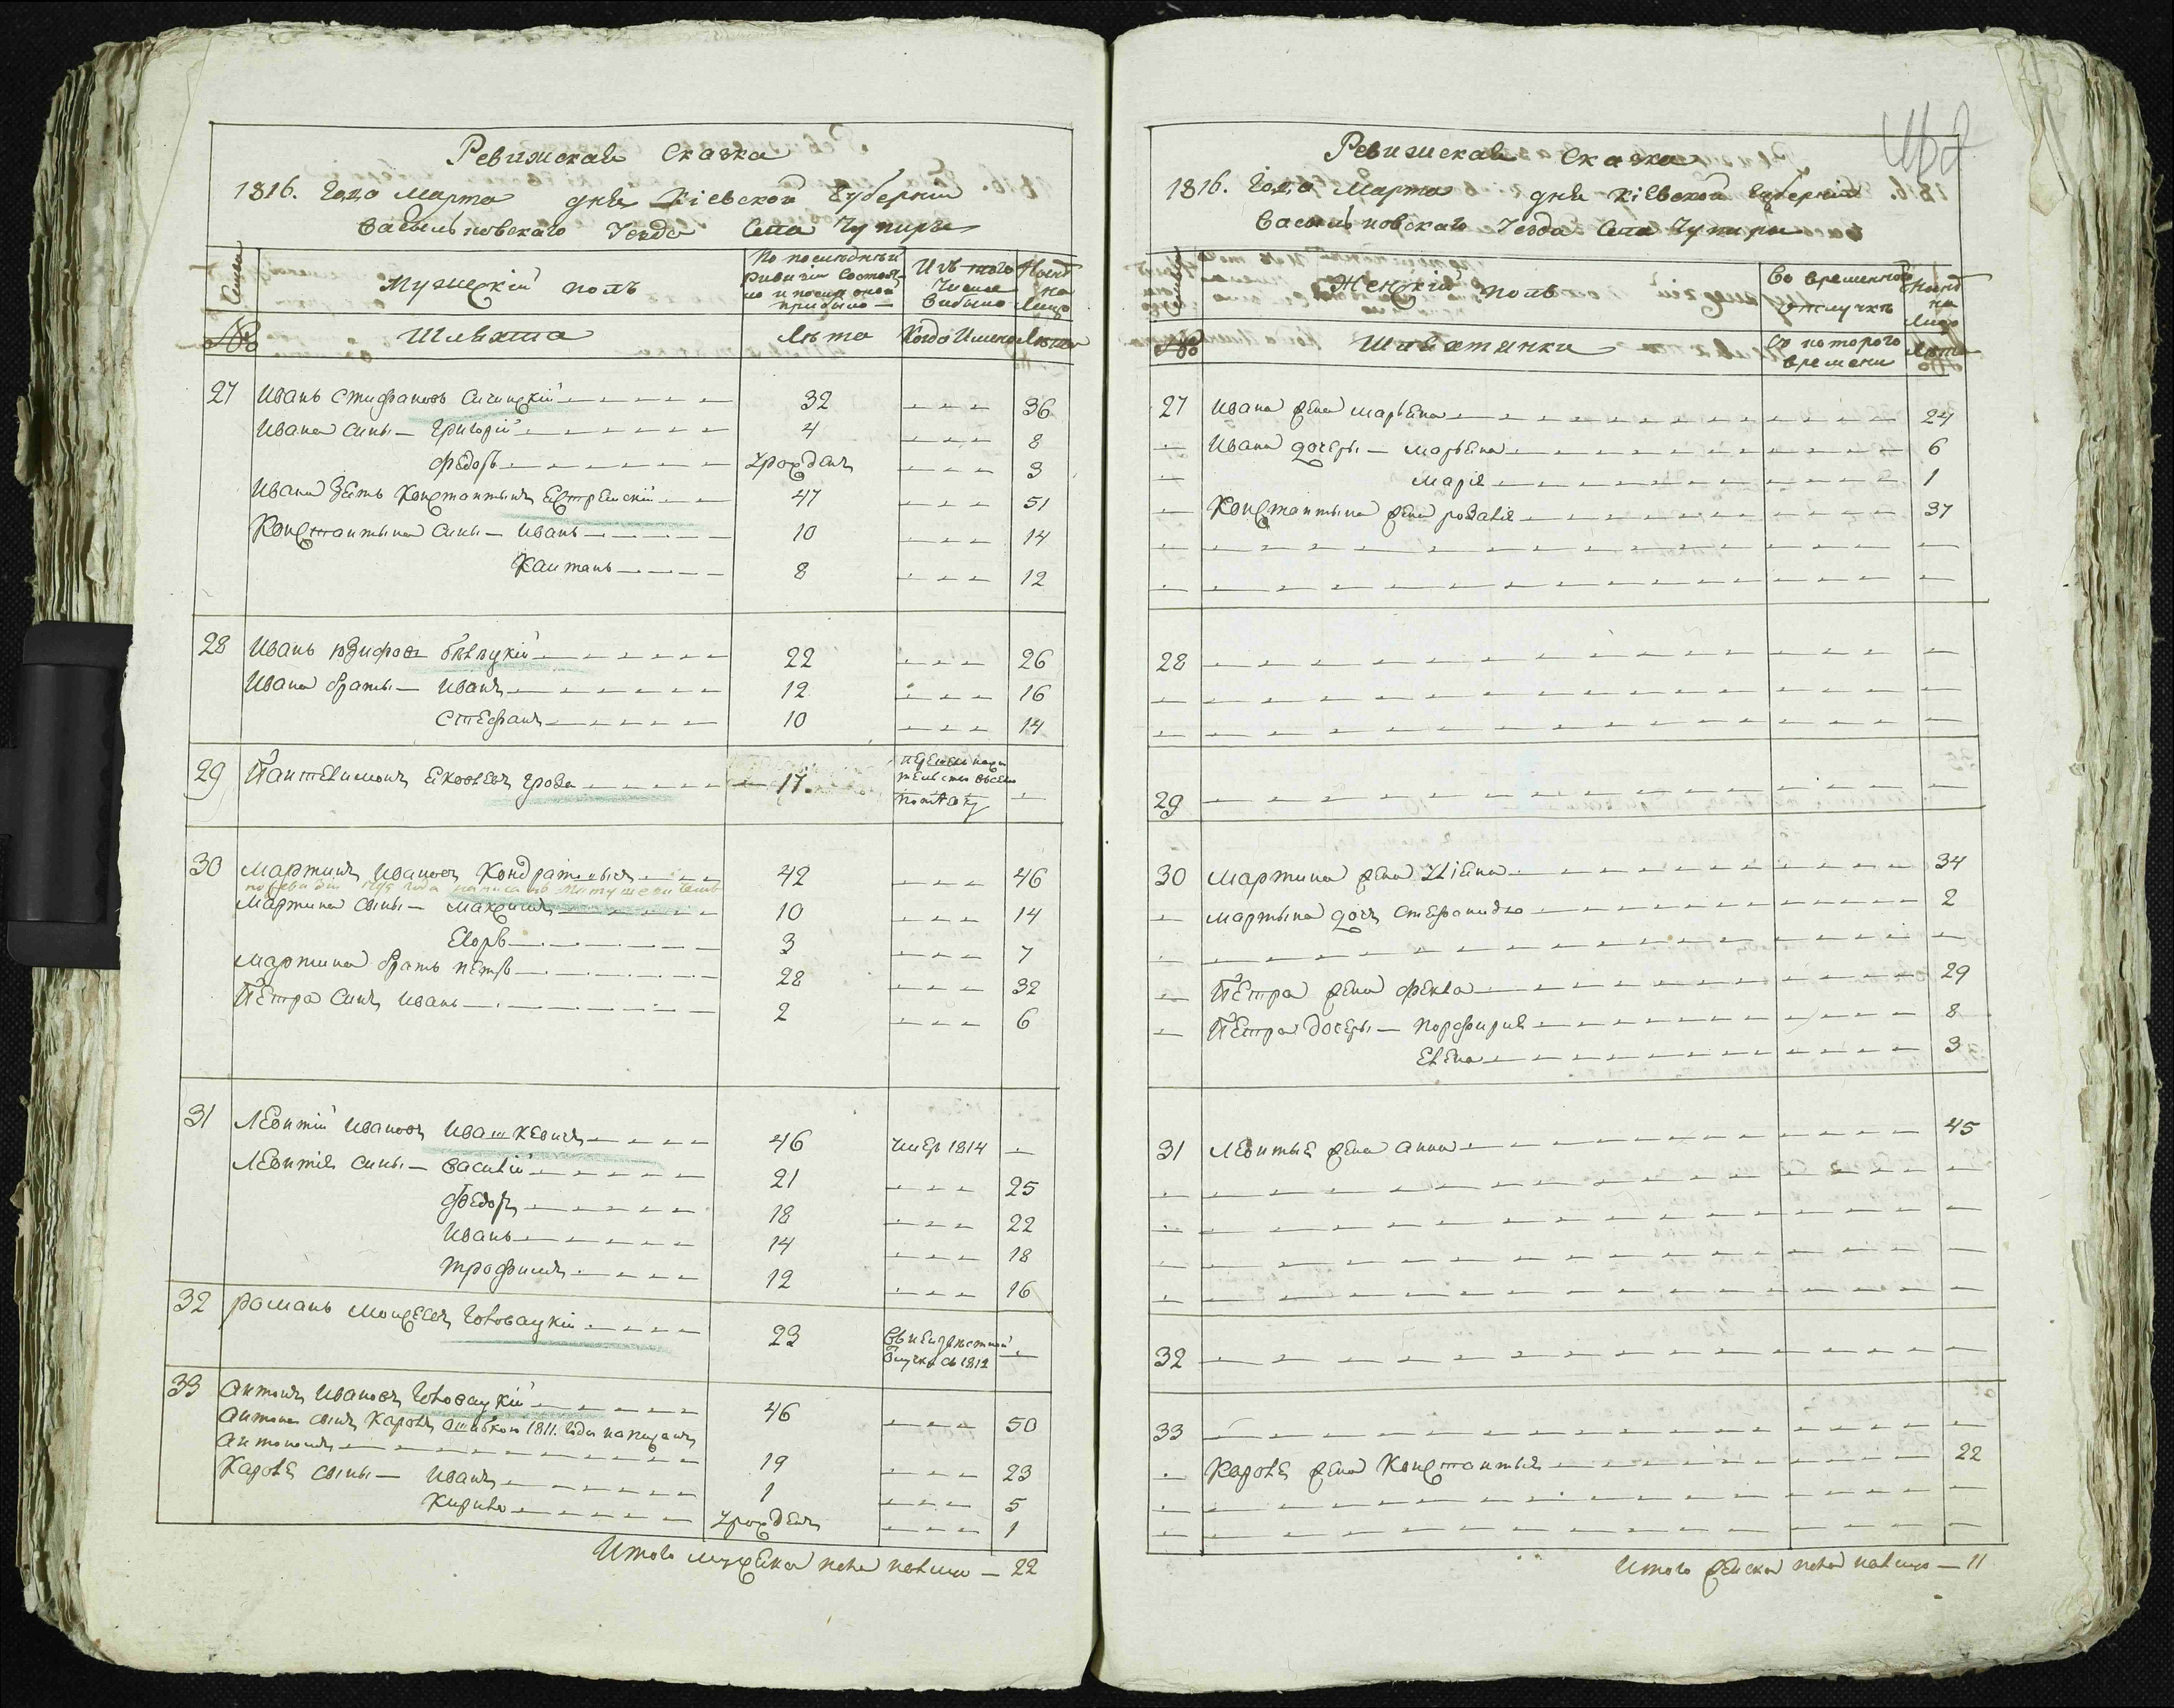 Ревижская Сказка
1816. Года Марта дня Кіевской Губерніи
Васильковскаго Уезда Села Чупиры
Семьи
Мужескій полъ
По последней ревизіи состояло и после оной прибыло
Изъ того числа выбыло
Ныне на лицо
№
Шляхта
Лета
Когда Именно
Лета
27 Иванъ Стифановъ Сичинскій 32 36
Ивана сины — Григорій 4 8
Федоръ Урожденъ 3
Ивана Зять Константынъ 47 51
Константына Сины — Иванъ 10 14
Каитанъ 8 12
28 Иванъ Юзифовъ Белецкій 22 26
Ивана браты — Иванъ 12 16
Стефанъ 10 14
29 Пантелимонъ Яковлевъ Гроза 17.
30 Мартинъ Ивановъ Кондратовичъ 42 46
Мартина Сыны — Максимъ 10 14
Егоръ 3 7
Мартина братъ Петръ 28 32
Петра Синъ Иванъ 2 6
31 Леонтій Ивановъ Ивашкевичъ 46 Умер 1814 —
Леонтія Сины — Василій 21 25
Федоръ 18 22
Иванъ 14 18
Трофимъ 12 16
32 Романъ Мойсеевъ Головацкій 23 въ неизвестной отлучке съ 1812 —
33 Антонъ Ивановъ Головацкій 46 50
Антона Сынъ Кароль Ошибкою 1811. Года написанъ
Антономъ 19 23
Кароля Сыны — Иванъ 1 5
Кирило Урожденъ 1
Итого мужеска пола налицо — 22
Ревижская Сказка
1816. Года Марта дня Кіевской Губерніи
Васильковскаго Уезда Села Чупиры
Женскій полъ
Во временной отлучке
Ныне на Лицо
№
Шляхтянки
Съ которого времени
Лета
27 Ивана жена Марьяна 24
Ивана дочеры — Марьяна 6
Марія 1
Константына жена Розалія 37
28
29
30 Мартина жена Уліяна 34
Мартына дочъ Стефанида 2
Петра жена Фекла 29
Петра дочеры — Порфирія 8
Елена 3
31 Леонтыя жена Анна 45
32
33
Кароля жена Константыя 22
Итого женска пола налицо — 11